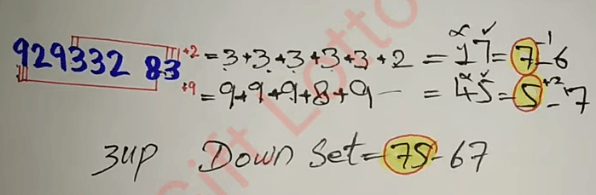 929332 83 +2 = 3+3+3+3+3+2 = 17 = 7-1 6
+9 = 9+9+9+8+9 = 45 = 5+2 7
3up Down Set = 75-67
Gift Lotto